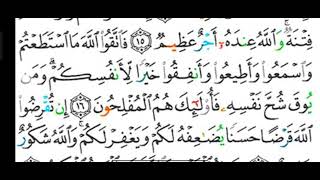 فِتْنَةٌ وَٱللَّهُ عِندَهُۥٓ أَجْرٌ عَظِيمٌ ١٥ فَٱتَّقُوا۟ ٱللَّهَ مَا ٱسْتَطَعْتُمْ
وَٱسْمَعُوا۟ وَأَطِيعُوا۟ وَأَنفِقُوا۟ خَيْرًا لِّأَنفُسِكُمْ وَمَن
يُوقَ شُحَّ نَفْسِهِۦ فَأُو۟لَٰٓئِكَ هُمُ ٱلْمُفْلِحُونَ ١٦ إِن تُقْرِضُوا۟
ٱللَّهَ قَرْضًا حَسَنًا يُضَٰعِفْهُ لَكُمْ وَيَغْفِرْ لَكُمْ وَٱللَّهُ شَكُورٌ